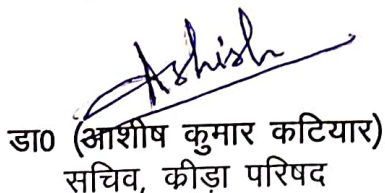 Ashish
डा0 (आशीष कुमार कटियार)
सचिव, क्रीड़ा परिषद